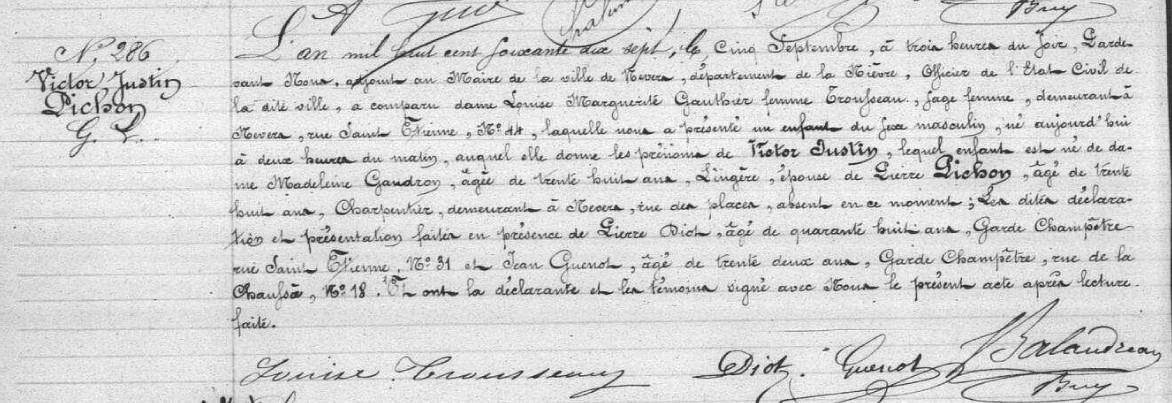 Nº, 286
Victor Justin
Pichon
L'an mil huit cent soixante dix sept, le Cinq Septembre, à trois heures du soir, Parde-
vant Nous, adjoint au Maire de la ville de Nevers, département de la Nièvre, Officier de l'Etat Civil de
la dite ville, a comparu dame Louise Marguerite Gauthier femme Trousseau, sage femme, demeurant à
Nevers, rue Saint Etienne, Nº 44, laquelle nous a présenté un enfant du sexe masculin, né aujourd'hui
à deux heures du matin, auquel elle donne les prénoms de Victor Justin, lequel enfant est né de da-
me Madeleine Gaudron, âgée de trente huit ans, Lingère, épouse de Pierre Pichon, âgé de trente
huit ans, Charpentier, demeurant à Nevers, rue des places, absent en ce moment; Les dites déclara-
tion et présentation faites en présence de Pierre Diot, âgé de quarante huit ans, Garde Champêtre
rue Saint Etienne, Nº 31 et Jean Guenot, âgé de trente deux ans, Garde Champêtre, rue de la
Chaussée, Nº 18. Et ont la déclarante et les témoins signé avec Nous le présent acte après lecture
faite.
Louise Trousseau Diot. Guenot Balandreau
Buy